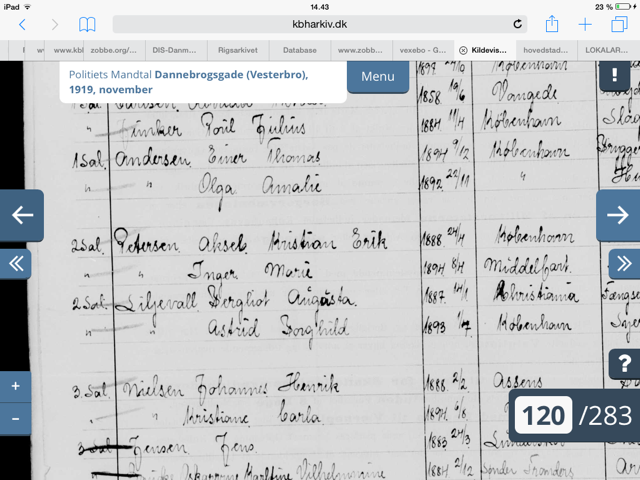 iPad 14.43 23 %
kbharkiv.dk
www.kbl zobbe.org/... DIS-Danm... Rigsarkivet Database www.zobb... vexebo - G... Kildevis... hovedstad... LOKALAR...
Politiets Mandtal Dannebrogsgade (Vesterbro), 1919, november
Menu
!
København
1858 19/6 Vangede
" Junker Poul Julius 1884 11/4 København
1 Sal. Andersen Einer Thomas 1894 9/12 København
" " Olga Amalie 1892 22/11 "
2 Sal. Petersen Aksel Kristian Erik 1888 24/4 København
" " Inger Marie 1894 8/4 Middelfart
2 Sal. Liljevall Bergliot Augusta. 1887 Christiania
" " Astrid Borghild 1893 København
3. Sal. Nielsen Johannes Henrik 1888 2/2 Assens
" " Kristiane Carla
3 Sal Jensen Jens 1883 24/3
Vilhelmmine 1884 2/12
+
−
?
120 /283